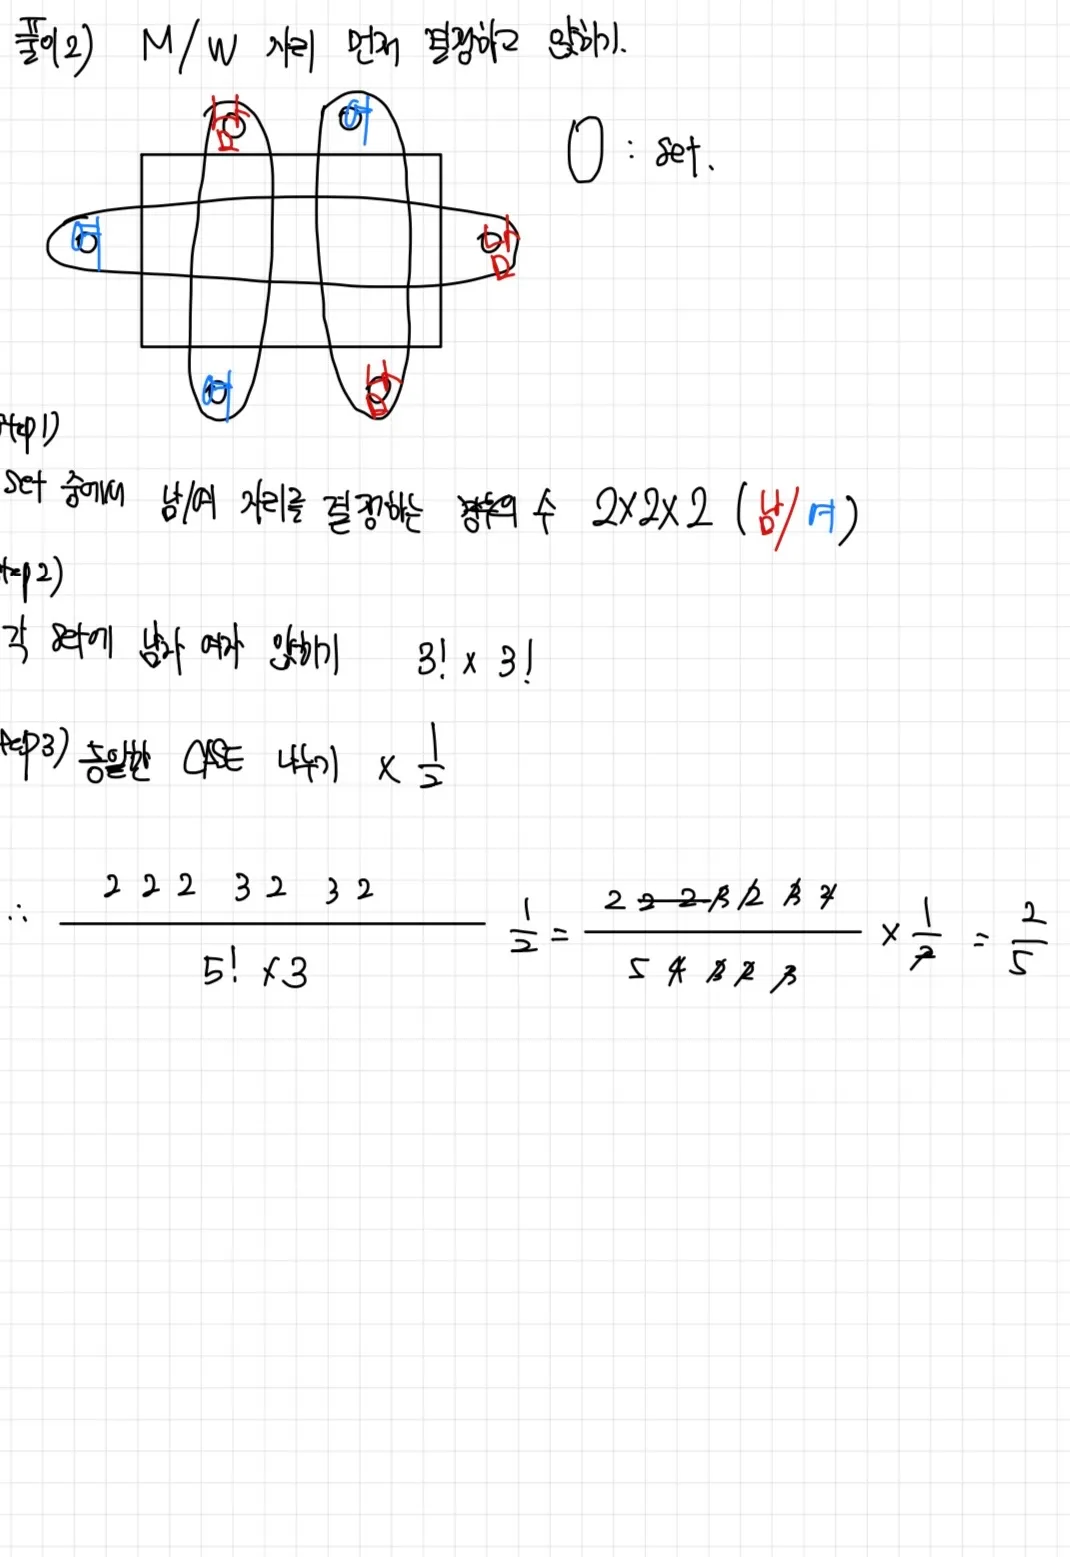 풀이2) M/W 자리 먼저 결정하고 앉히기.
남 여
O : set.
여 남
여 남
step1)
set 중에서 남/여 자리를 결정하는 경우의 수 2×2×2 (남/여)
step2)
각 set에 남자 여자 앉히기 3! × 3!
step3) 동일한 CASE 나누기 × 1/2
∴ 2 2 2 3 2 3 2 / 5! × 3 1/2 = 2 2 2 3 2 3 2 / 5 4 3 2 3 × 1/2 = 2/5